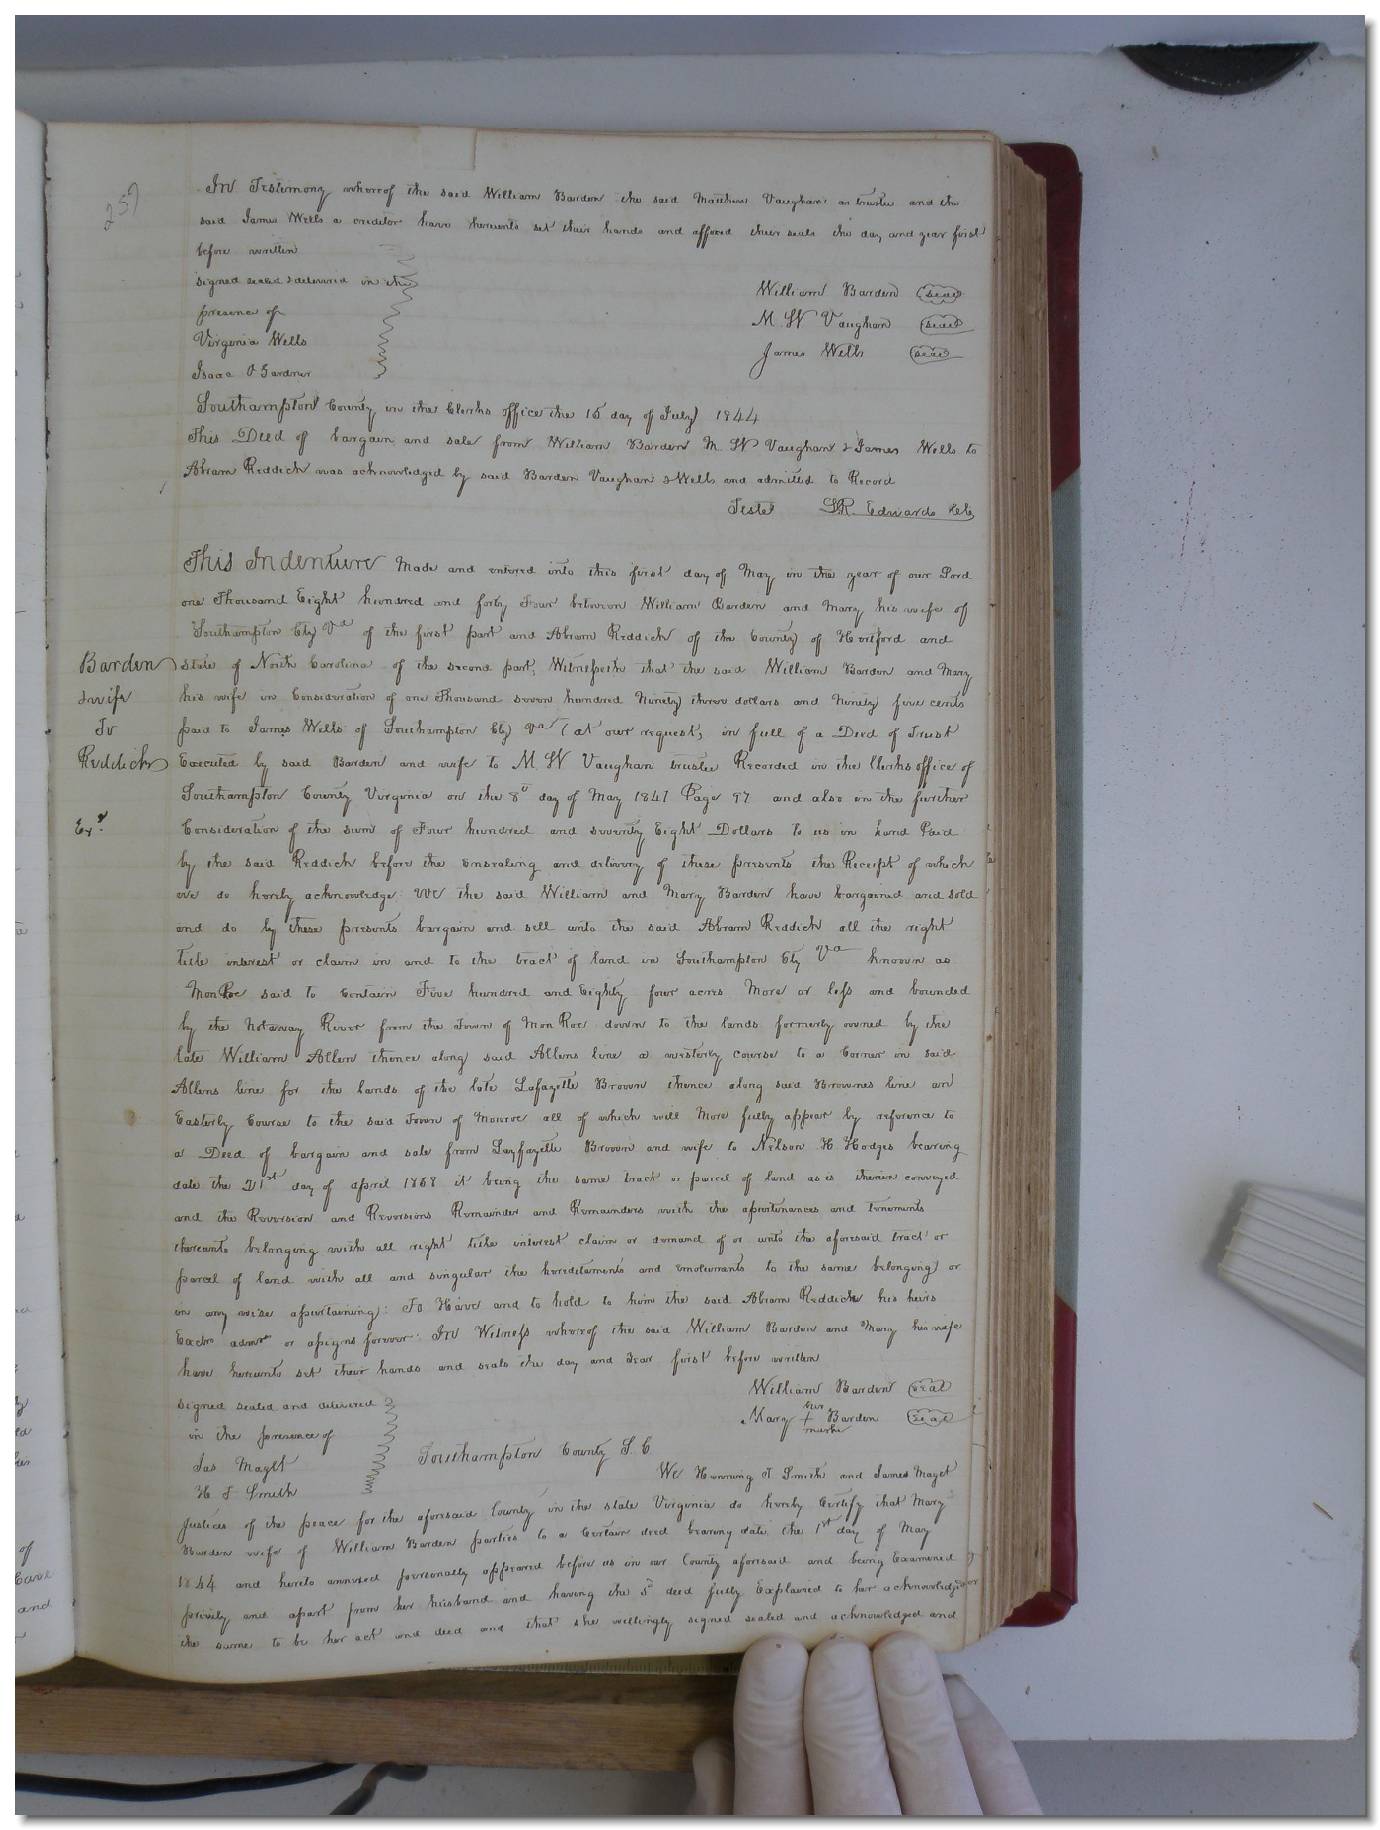 259
In Testimony whereof the said William Barden the said Matthew Vaughan as trustee and the
said James Wells a creditor have hereunto set their hands and affixed their seals the day and year first
before written
signed sealed & delivered in the
presence of
Virginia Wells
Isaac O Gardner
William Barden (seal)
M. W Vaughan (seal)
James Wells (seal)
Southampton County in the Clerks office the 15 day of July 1844
This Deed of bargain and sale from William Barden M. W Vaughan & James Wells to
Abram Reddick was acknowledged by said Barden Vaughan & Wells and admitted to Record
Teste LR. Edwards Clk
This Indenture Made and entered into this first day of May in the year of our Lord
one Thousand Eight hundred and forty Four between William Barden and Mary his wife of
Southampton Cty Va of the first part and Abram Reddick of the County of Hertford and
Barden State of North Carolina of the second part, Witnesseth that the said William Barden and Mary
& wife his wife in Consideration of one Thousand seven hundred Ninety three dollars and Ninety five cents
To paid to James Wells of Southampton Cty Va (at our request, in full of a Deed of Trust
Reddick Executed by said Barden and wife to M. W Vaughan trustee Recorded in the Clerks office of
Southampton County Virginia on the 8th day of May 1841 Page 97 and also in the further
Exd Consideration of the sum of Four hundred and seventy Eight Dollars to us in hand Paid
by the said Reddick before the Ensealing and delivery of these presents the Receipt of which
we do hereby acknowledge We the said William and Mary Barden have bargained and sold
and do by these presents bargain and sell unto the said Abram Reddick all the right
title interest or claim in and to the tract of land in Southampton Cty Va known as
MonRoe said to Contain Five hundred and Eighty four acres More or less and bounded
by the Notaway River from the Town of MonRoe down to the lands formerly owned by the
late William Allen thence along said Allens line a westerly course to a Corner on said
Allens line for the lands of the late Lafayette Brown thence along said Browns line an
Easterly Course to the said Town of Monroe all of which will More fully appear by reference to
a Deed of bargain and sale from Layfayette Brown and wife to Nelson H Hodges bearing
date the 21st day of April 1838 it being the same tract or parcel of land as is therein conveyed
and the Reversion and Reversions Remainder and Remainders with the apurtinances and tenements
thereunto belonging with all right title interest claim or demand of or unto the aforesaid tract or
parcel of land with all and singular the hereditaments and emoluments to the same belonging or
in any wise apurtaining: To Have and to hold to him the said Abram Reddick his heirs
Exctrs admrs or assigns forever: In Witness whereof the said William Barden and Mary his wife
have hereunto set their hands and seals the day and Year first before written
William Barden (seal)
her
Mary + Barden (seal)
mark
signed sealed and delivered
in the presence of
Jas Maget
H T Smith
Southampton County S. C.
We Henning T Smith and James Maget
Justices of the peace for the aforesaid County in the state Virginia do hereby Certify that Mary
Barden wife of William Barden parties to a Certain deed bearing date the 1st day of May
1844 and hereto annexed personally appeared before us in our County aforesaid and being Examined
privily and apart from her husband and having the sd deed fully Explained to her acknowledged
the same to be her act and deed and that she willingly signed sealed and acknowledged and